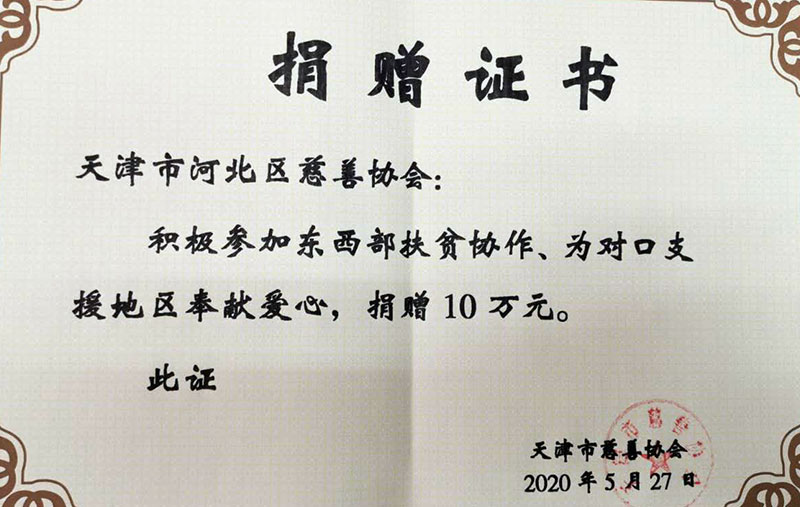 捐赠证书
天津市河北区慈善协会：
积极参加东西部扶贫协作、为对口支
援地区奉献爱心，捐赠10万元。
此证
天津市慈善协会
2020年5月27日